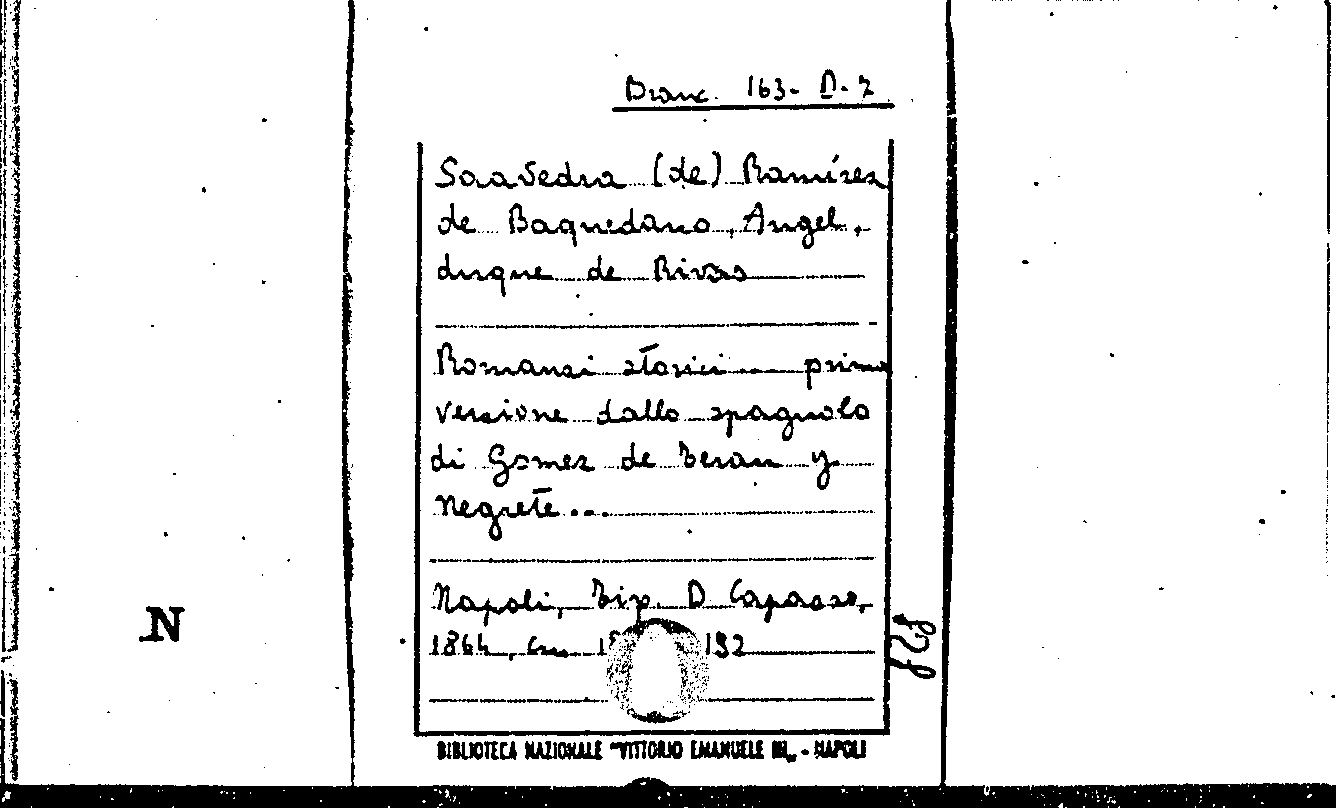 Branc. 163- D-7
Saavedra (de) Ramírez
de Baquedano, Angel,
duque de Rivas
Romanzi storici... prima
versione dallo spagnolo
di Gomez de Teran y
Negrete...
Napoli, Tip. D Capasso,
1864, cm. 192
828
BIBLIOTECA NAZIONALE "VITTORIO EMANUELE III„ - NAPOLI
N